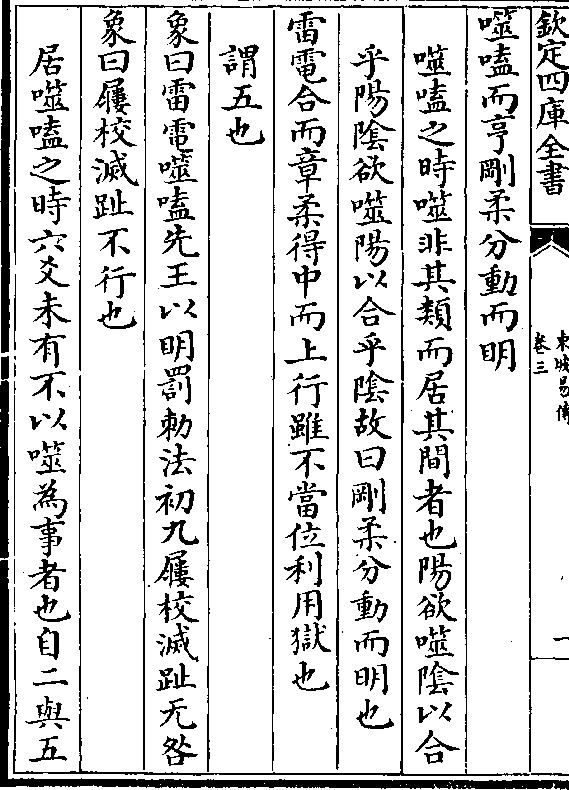 欽定四庫全書
東坡易傳
卷三
一
噬嗑而亨剛柔分動而明
噬嗑之時噬非其類而居其間者也陽欲噬陰以合
乎陽陰欲噬陽以合乎陰故曰剛柔分動而明也
雷電合而章柔得中而上行雖不當位利用獄也
謂五也
象曰雷電噬嗑先王以明罰勑法初九屨校滅趾无咎
象曰屨校滅趾不行也
居噬嗑之時六爻未有不以噬為事者也自二與五